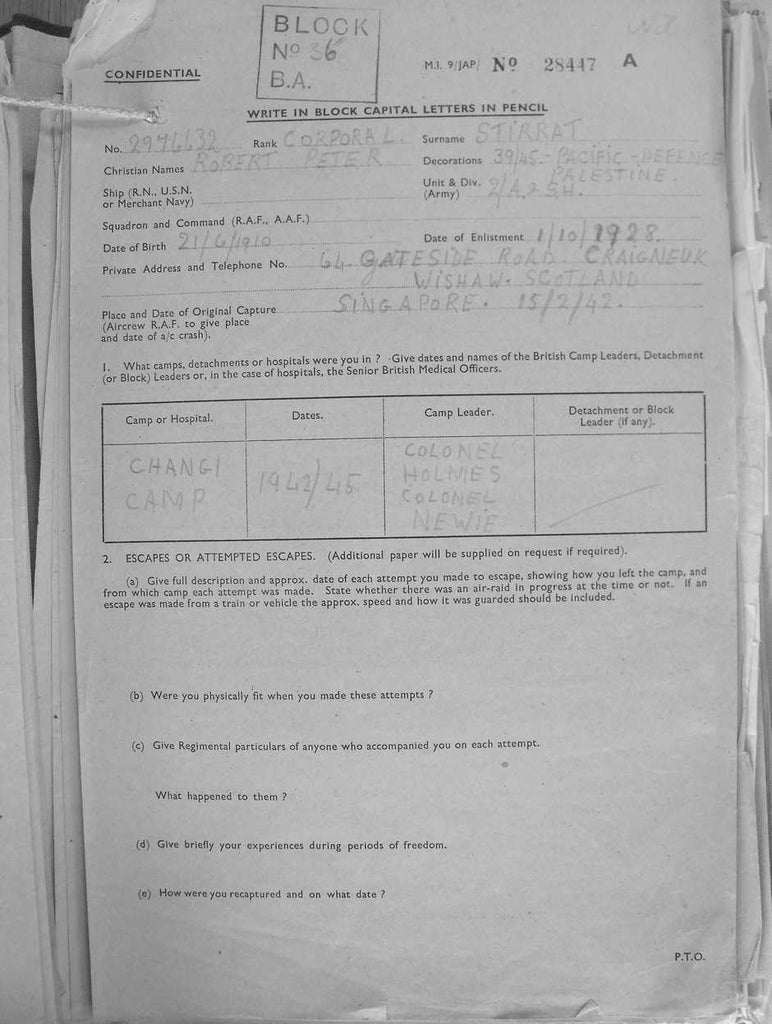 BLOCK
No 36
B.A.
CONFIDENTIAL
M.I. 9/JAP/ No 28447 A
WRITE IN BLOCK CAPITAL LETTERS IN PENCIL
No. 2976632 Rank CORPORAL. Surname STIRRAT
Christian Names ROBERT PETER Decorations 39/45.-PACIFIC-DEFENCE
PALESTINE.
Ship (R.N., U.S.N. or Merchant Navy)
Unit & Div. (Army) 2/A&SH.
Squadron and Command (R.A.F., A.A.F.)
Date of Birth 21/6/1910 Date of Enlistment 1/10/1928.
Private Address and Telephone No. 64. GATESIDE ROAD. CRAIGNEUK
WISHAW. SCOTLAND
Place and Date of Original Capture SINGAPORE. 15/2/42.
(Aircrew R.A.F. to give place
and date of a/c crash).
1. What camps, detachments or hospitals were you in ? Give dates and names of the British Camp Leaders, Detachment
(or Block) Leaders or, in the case of hospitals, the Senior British Medical Officers.
Camp or Hospital. Dates. Camp Leader. Detachment or Block Leader (if any).
CHANGI CAMP 1942/45 COLONEL HOLMES COLONEL NEWIE
2. ESCAPES OR ATTEMPTED ESCAPES. (Additional paper will be supplied on request if required).
(a) Give full description and approx. date of each attempt you made to escape, showing how you left the camp, and
from which camp each attempt was made. State whether there was an air-raid in progress at the time or not. If an
escape was made from a train or vehicle the approx. speed and how it was guarded should be included.
(b) Were you physically fit when you made these attempts ?
(c) Give Regimental particulars of anyone who accompanied you on each attempt.
What happened to them ?
(d) Give briefly your experiences during periods of freedom.
(e) How were you recaptured and on what date ?
P.T.O.